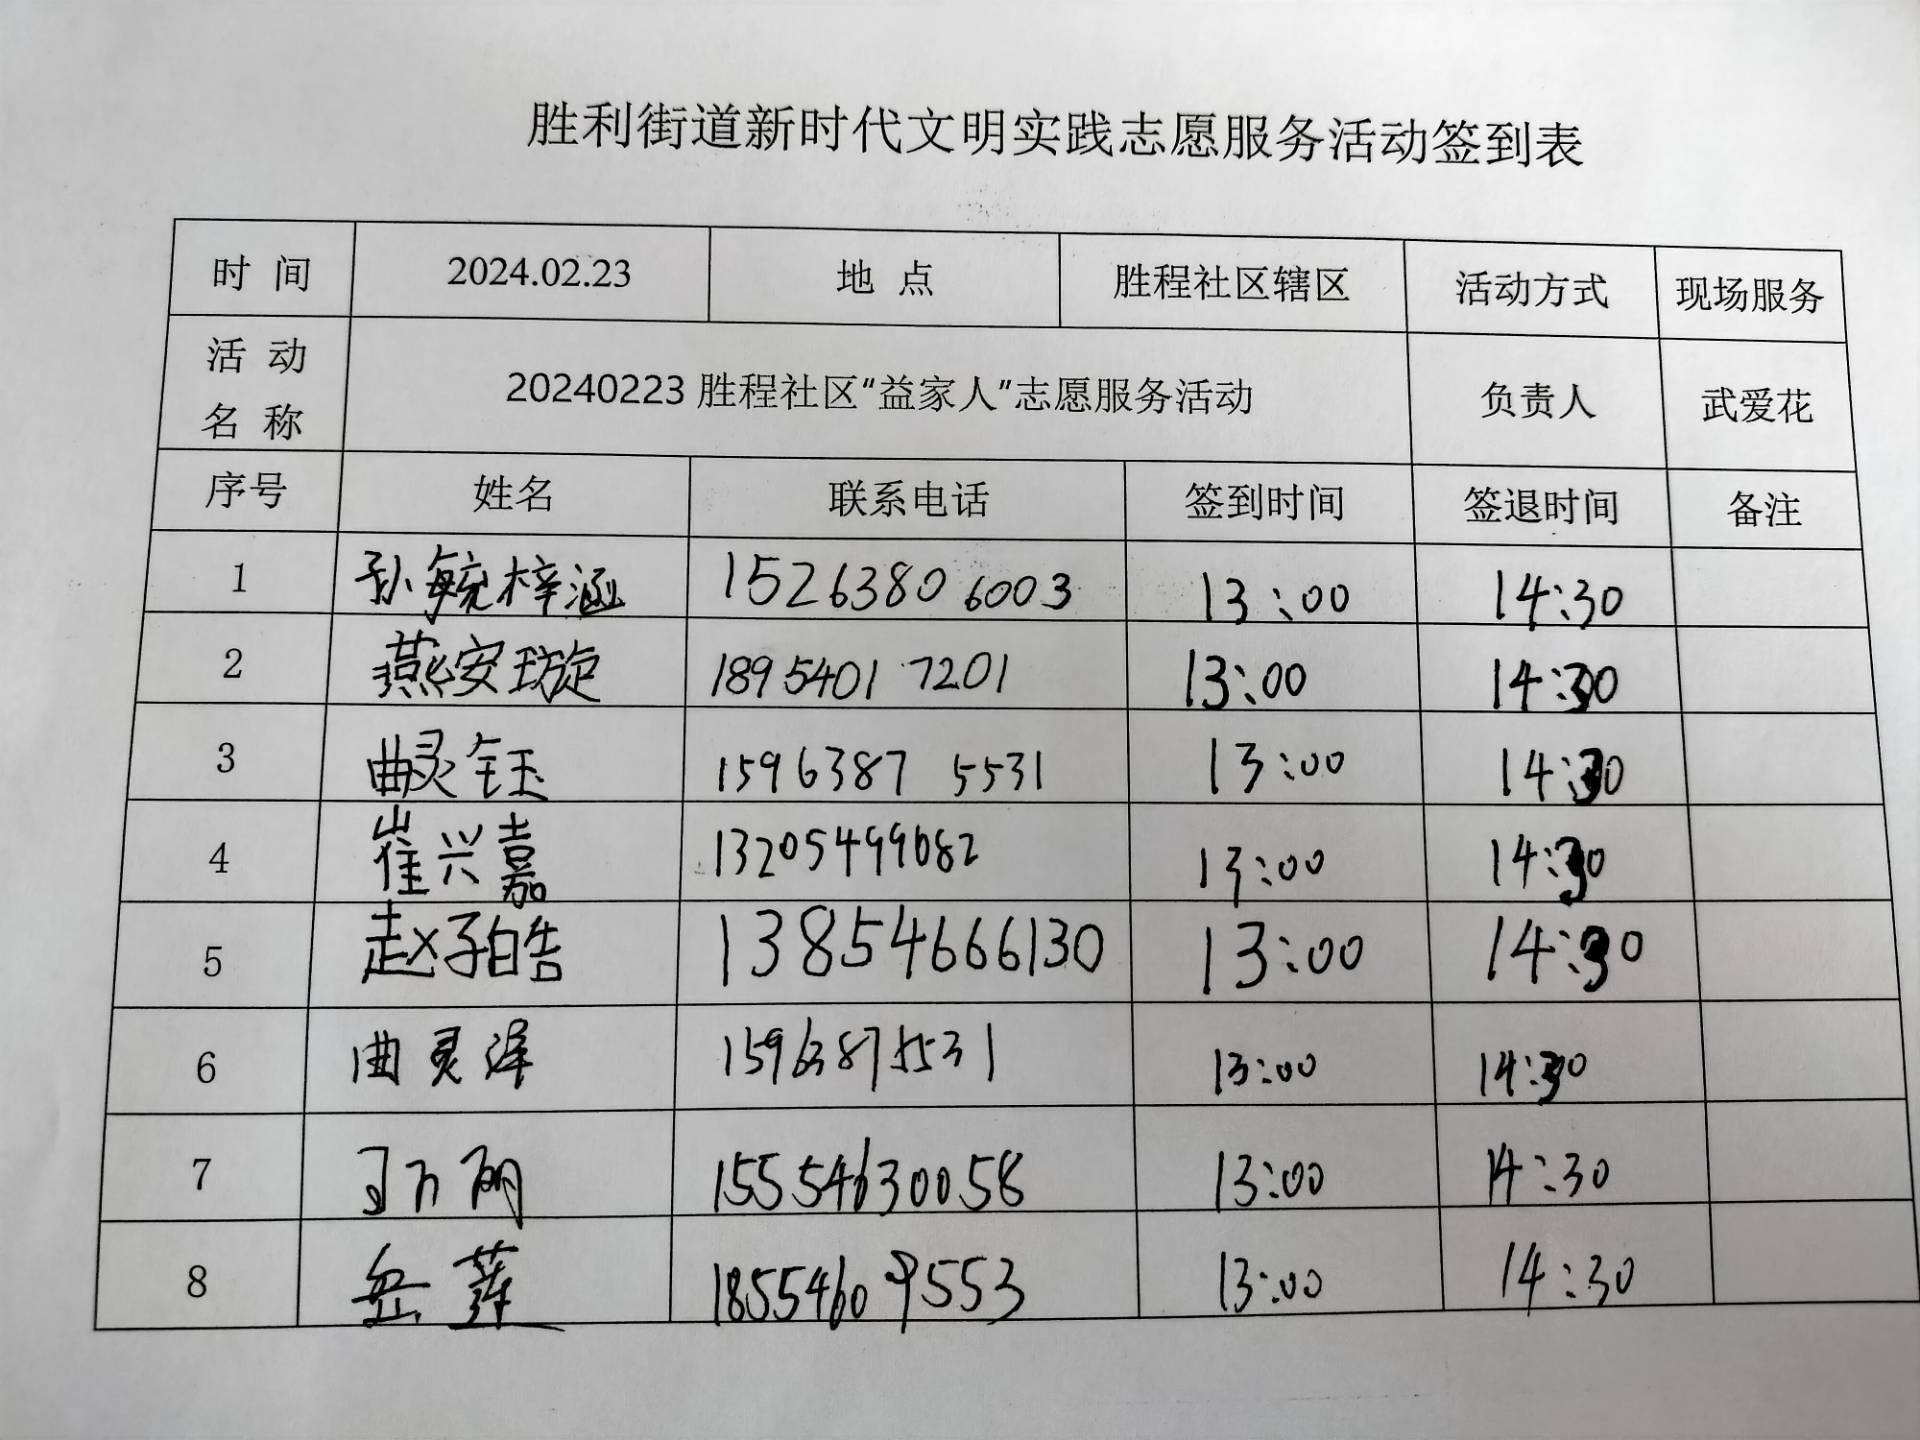 胜利街道新时代文明实践志愿服务活动签到表
时 间 2024.02.23 地 点 胜程社区辖区 活动方式 现场服务
活 动
名 称 20240223 胜程社区“益家人”志愿服务活动 负责人 武爱花
序号 姓名 联系电话 签到时间 签退时间 备注
1 孙毓梓涵 15263806003 13:00 14:30
2 燕安璇 18954017201 13:00 14:30
3 曲灵钰 15963875531 13:00 14:30
4 崔兴嘉 13205499682 13:00 14:30
5 赵子皓 13854666130 13:00 14:30
6 曲灵泽 15963875531 13:00 14:30
7 15554630058 13:00 14:30
8 岳莲 18554609553 13:00 14:30